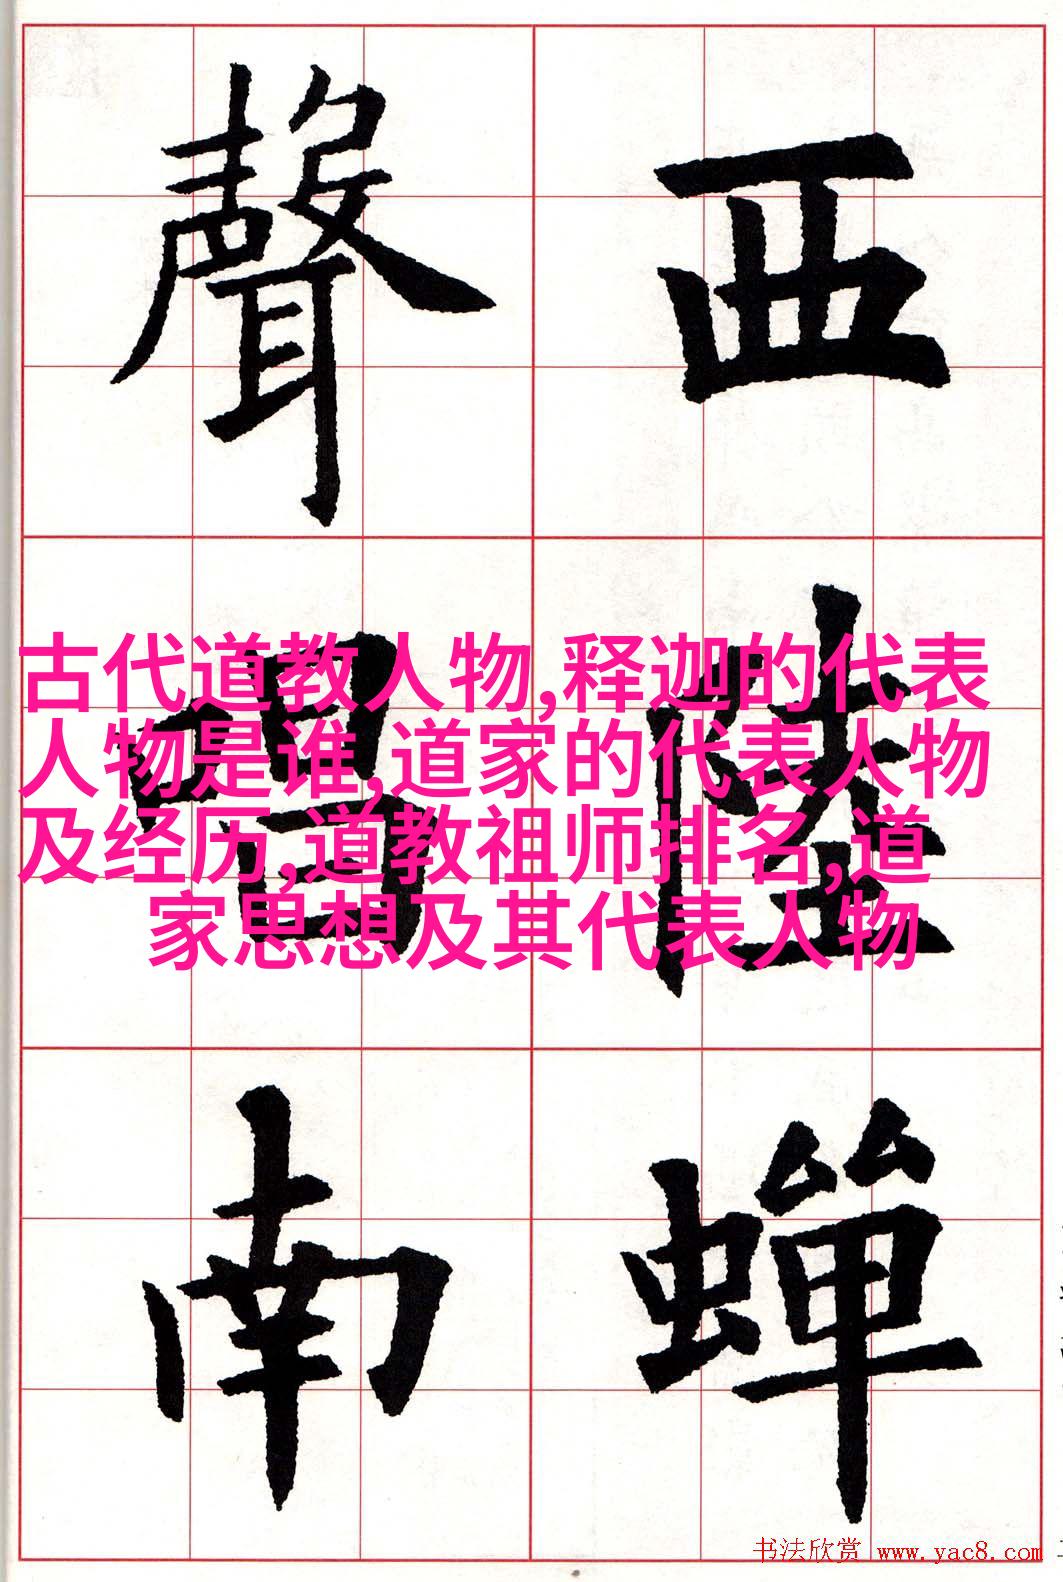 西陸蟬
聲唱南
古代道教人物,释迦的代表
人物是谁,道家的代表人物
及经历,道教祖师排名,道
家思想及其代表人物
书法欣赏 www.yac8.com